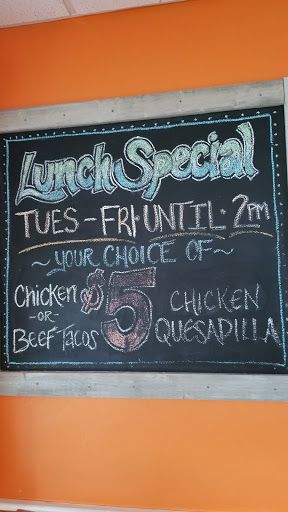 Lunch Special
TUES - FRI · UNTIL · 2PM
~ YOUR CHOICE OF ~
Chicken
-OR-
Beef Tacos
$5
CHICKEN
QUESADILLA